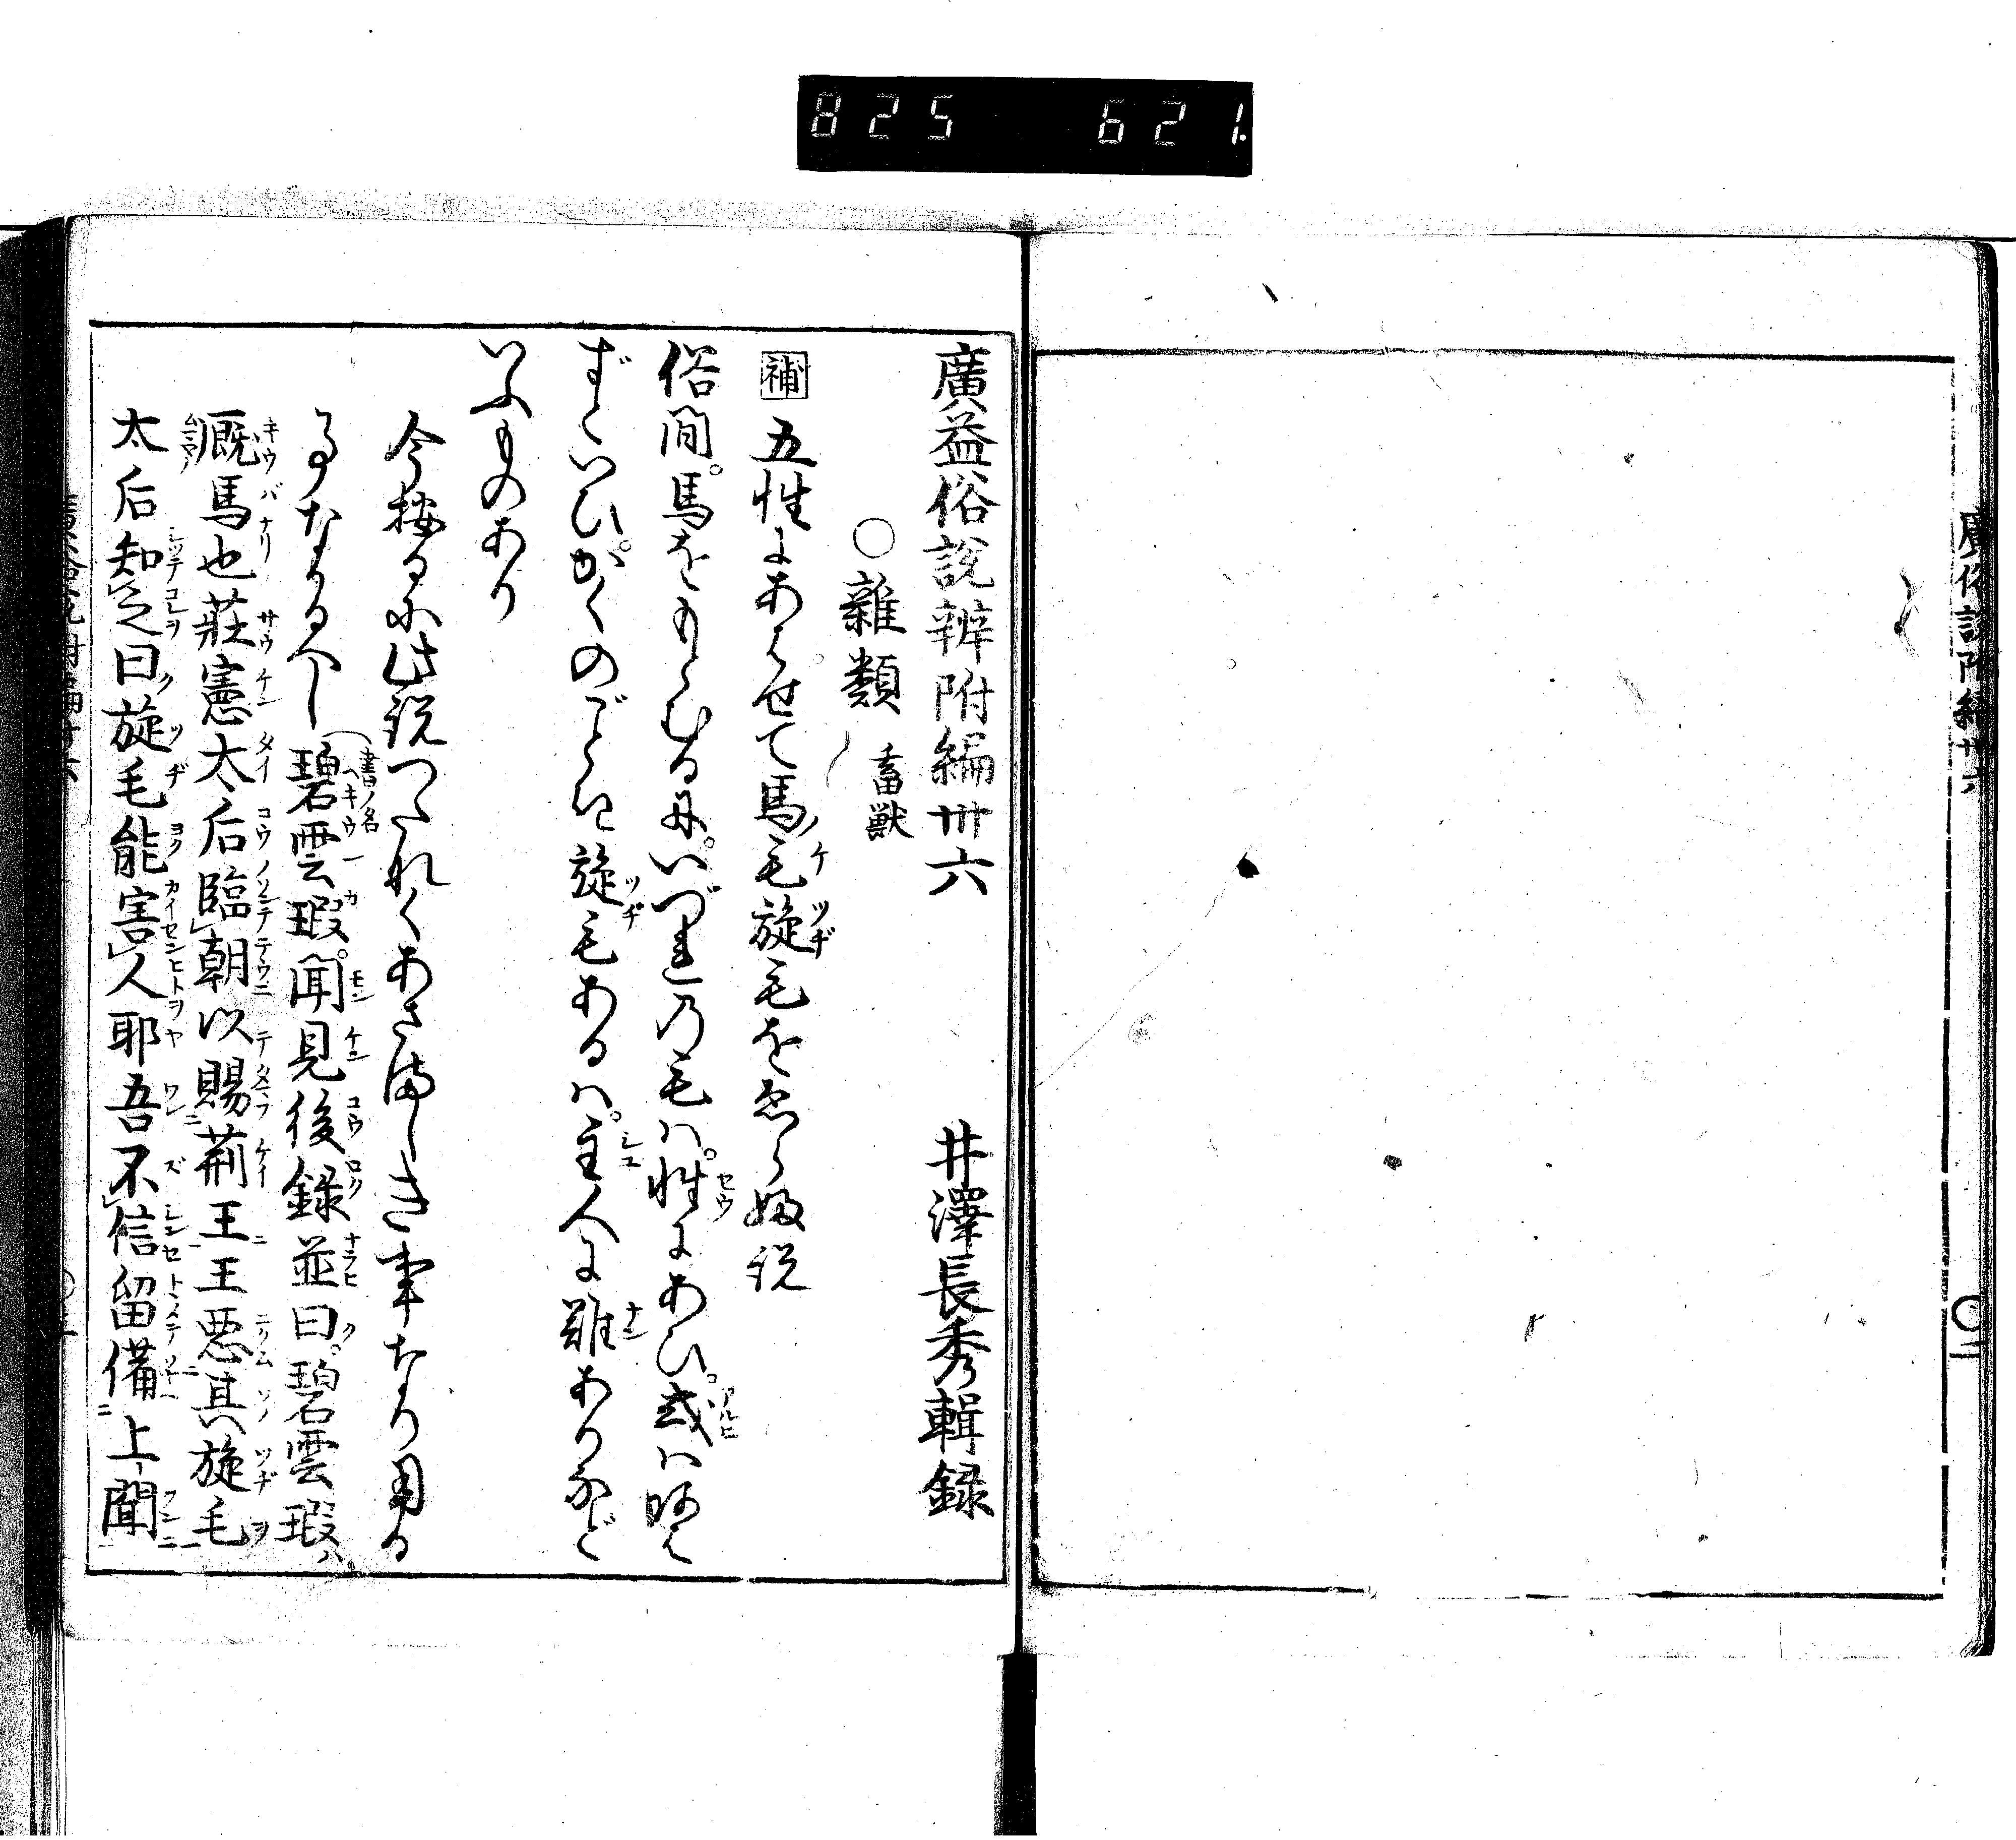 825 621
廣益俗説辨附編卅六 井澤長秀輯録
○雜類 畜獣
補 五性にあはせて馬ノ毛旋毛をゑらぶ説
俗間。馬をもとむるに。いづれの毛は。性にあひ。或はあは
ずといひ。かくのごとき旋毛あるは。主人に難ありなど
いふものあり
今按るに此説つたなくあさましき事なり用る
事なかるべし碧雲騢。聞見後録並曰。碧雲騢ハ
厩馬也莊憲太后臨朝以賜荊王王悪其旋毛
太后知之曰旋毛能害人耶吾不信留備上閑